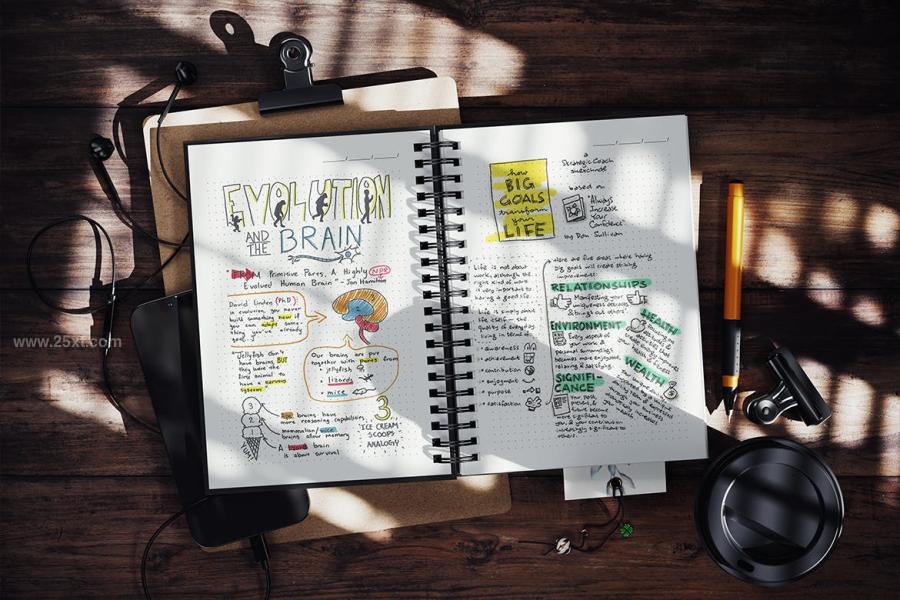 EVOLUTION
AND THE BRAIN
"FROM Primitive Parts, A Highly NPR
Evolved Human Brain" - Jon Hamilton
David Linden (PhD):
in evolution, you never
build something new if
you can adapt some
thing you've already
got...
Jellyfish don't
have brains BUT
they were the
first animal to
have a nervous
system.
Our brains are put
together with parts from
jellyfish
lizards
mice
3
2
1
ape brains have
more reasoning capabilities
mammalian/mice
brains allow memory
A lizard brain
is about survival
3
ICE CREAM
SCOOPS
ANALOGY
how
BIG
GOALS
transform
your
LIFE
a
Strategic Coach
based on
"Always
Increase
Your
Confidence"
by Dan Sullivan
Life is not about
work, although the
right kind of work
is very important to
having a good life.
Life is simply about
life itself - the
quality of everyday
living in several
awareness
achievement
contribution
enjoyment
purpose
satisfaction
there are five areas where having
big goals will create striking
improvements:
RELATIONSHIPS
Manifesting your
uniqueness attracts
& brings out others'
ENVIRONMENT
Every aspect of
your work &
personal surroundings
becomes more enjoyable,
relaxing & satisfying
SIGNIFI-
CANCE
HEALTH
WEALTH
www.25xt.com